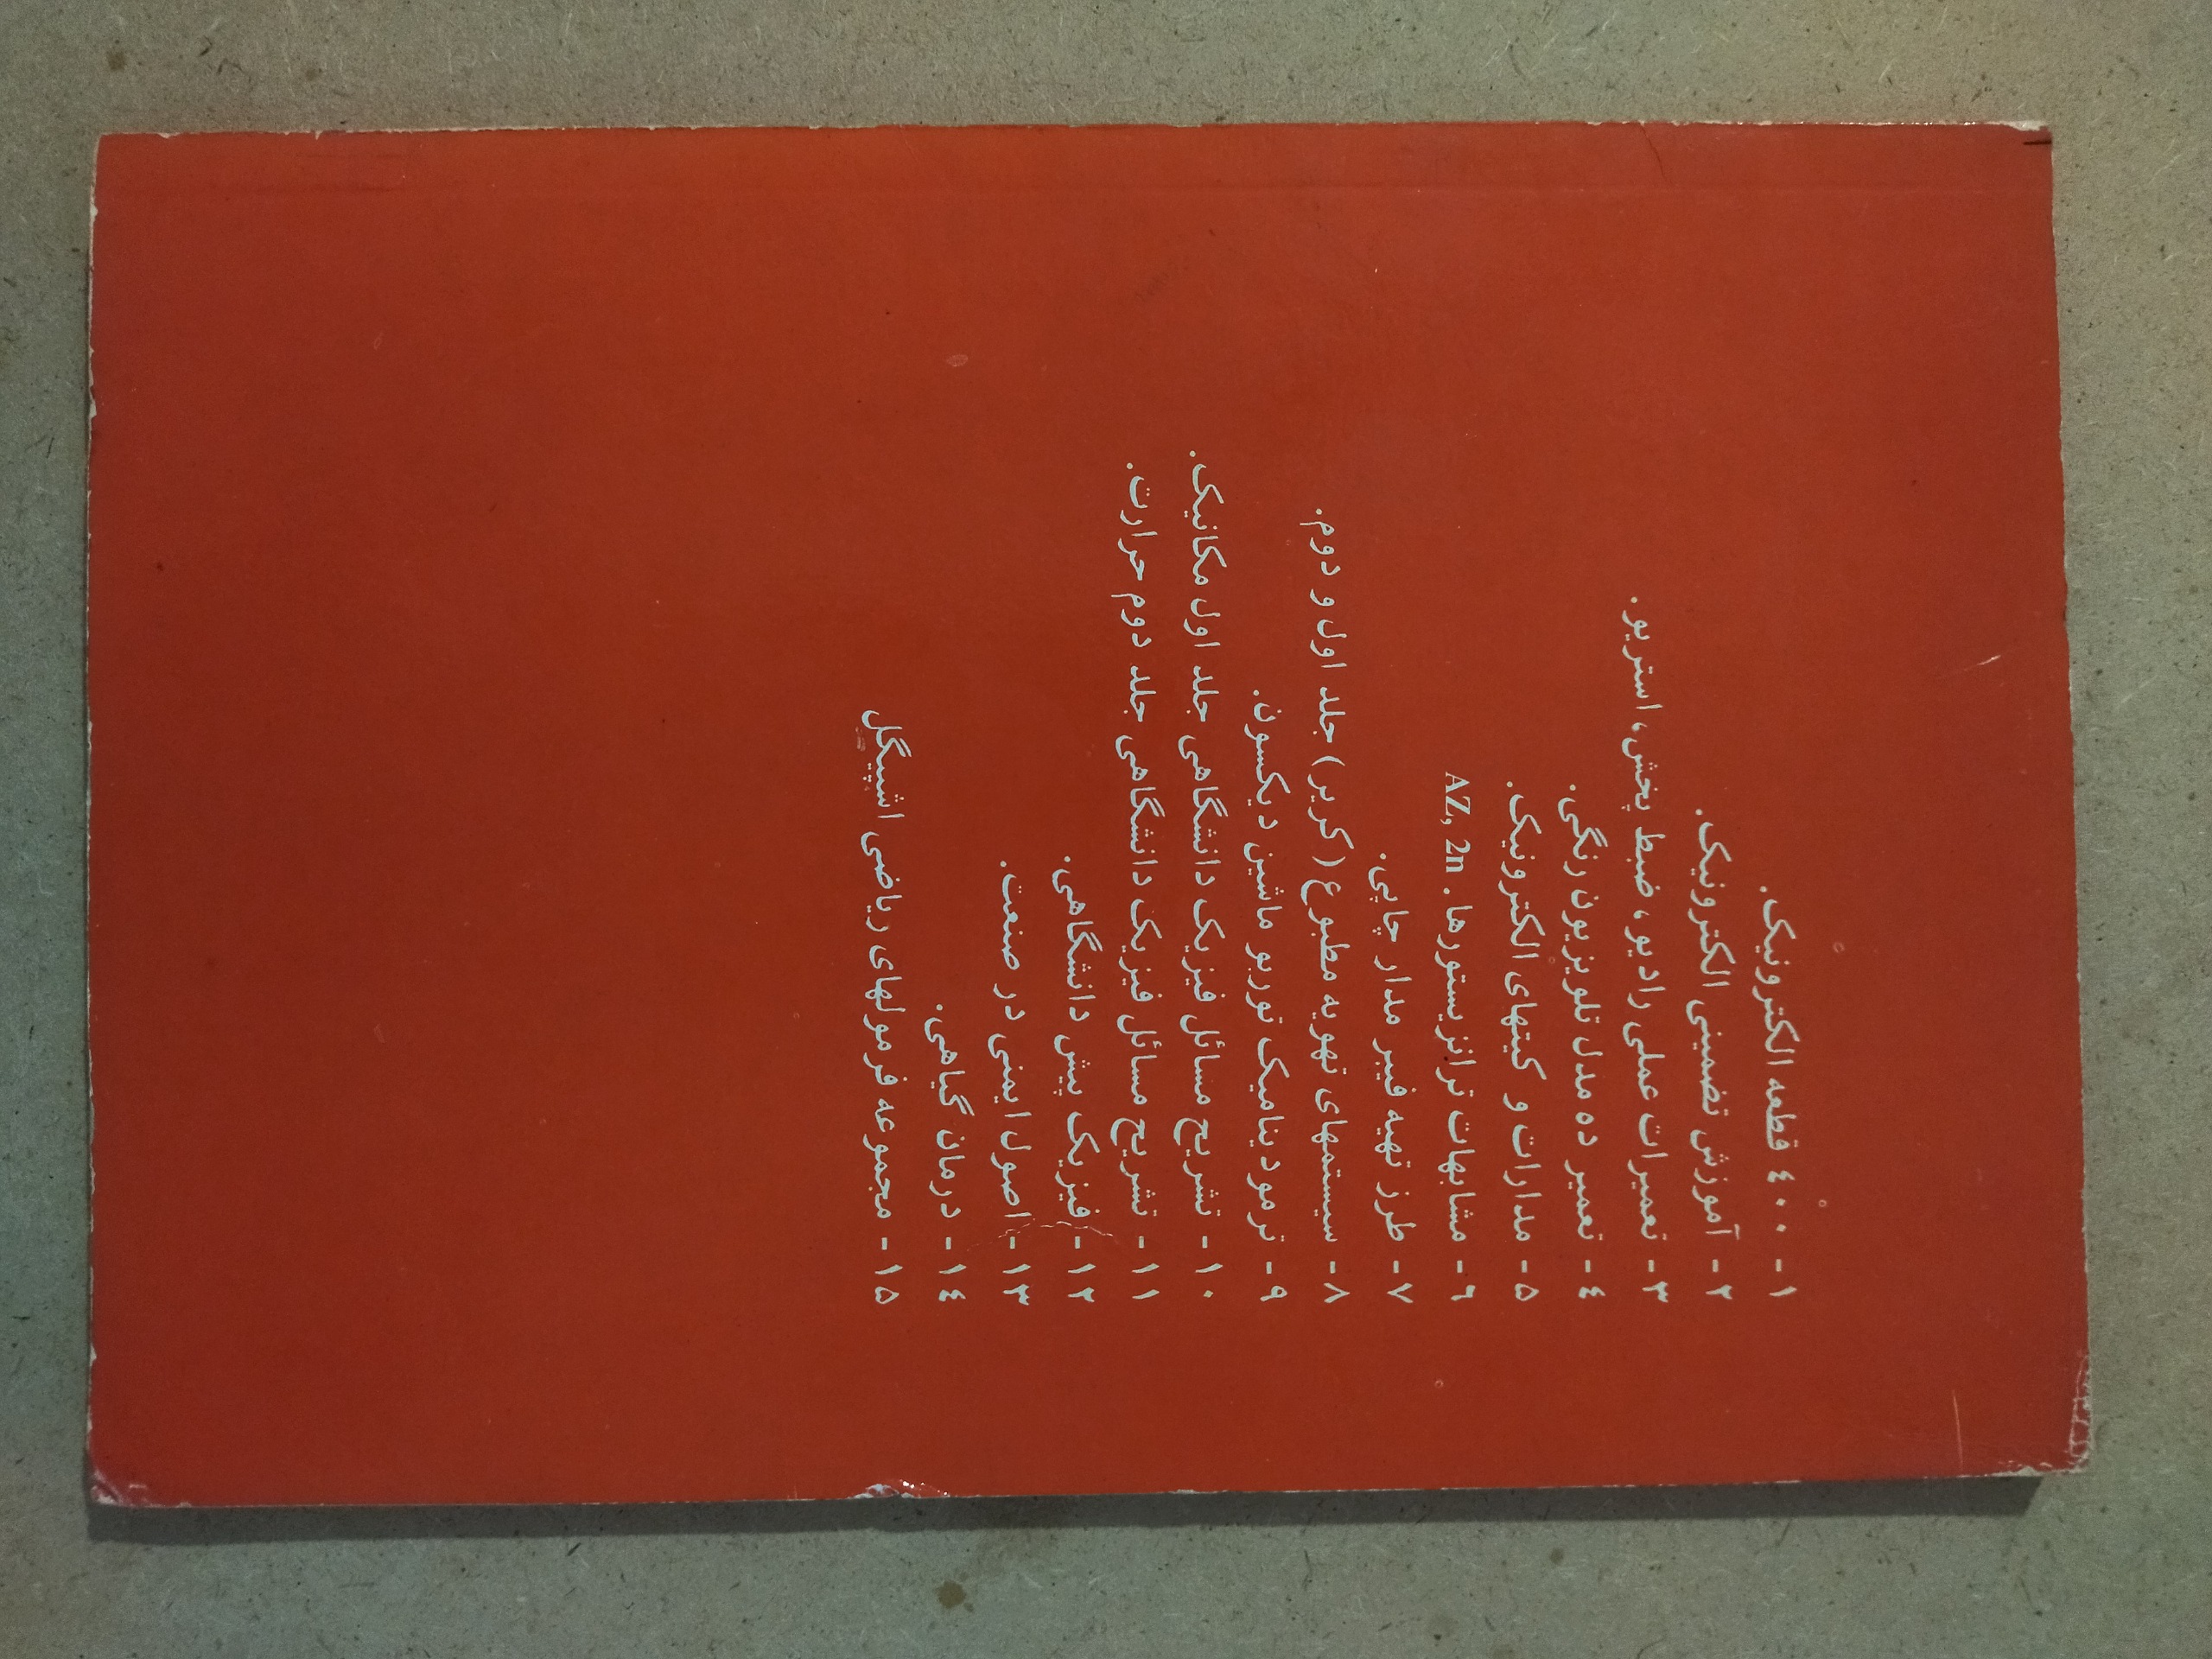 ۱ - ۴۰۰ قطعه الکترونیک.
۲ - آموزش تضمینی الکترونیک.
۳ - تعمیرات عملی رادیو، ضبط پخش، استریو.
۴ - تعمیر ده مدل تلویزیون رنگی.
۵ - مدارات و کیتهای الکترونیک.
۶ - مشابهات ترانزیستورها. AZ, 2n
۷ - طرز تهیه فیبر مدار چاپی.
۸ - سیستمهای تهویه مطبوع (کریر) جلد اول و دوم.
۹ - ترمودینامیک توربو ماشین دیکسون.
۱۰ - تشریح مسائل فیزیک دانشگاهی جلد اول مکانیک.
۱۱ - تشریح مسائل فیزیک دانشگاهی جلد دوم حرارت.
۱۲ - فیزیک پیش دانشگاهی.
۱۳ - اصول ایمنی در صنعت.
۱۴ - درمان گیاهی.
۱۵ - مجموعه فرمولهای ریاضی اشپیگل